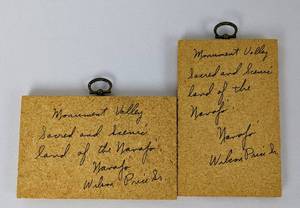 Monument Valley
Sacred and Scenic
land of the Navajo
Navajo
Wilson Price Sr.
Monument Valley
Sacred and Scenic
land of the
Navajo
Navajo
Wilson Price Sr.